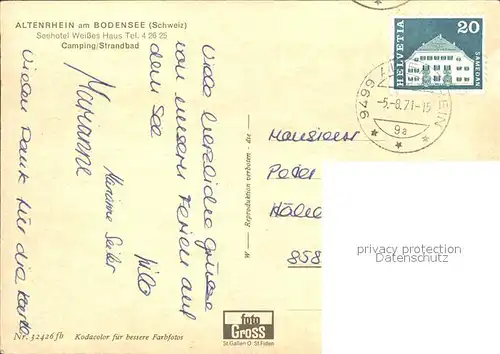 ALTENRHEIN am BODENSEE (Schweiz)
Seehotel Weißes Haus Tel. 4 26 25
Camping/Strandbad
Viele herzliche Grüsse
von unseren Ferien auf
dem See
Marianne
Vielen Dank für die Karte
HELVETIA
20
SAMEDAN
-5.-8.71-15
9a
Monsieur
Peter
858
W — Reproduktion verboten - die —
Nr. 32426 fb
Kodacolor für bessere Farbfotos
foto
GROSS
St.Gallen O St.Fiden
privacy protection
www.oldthing.com